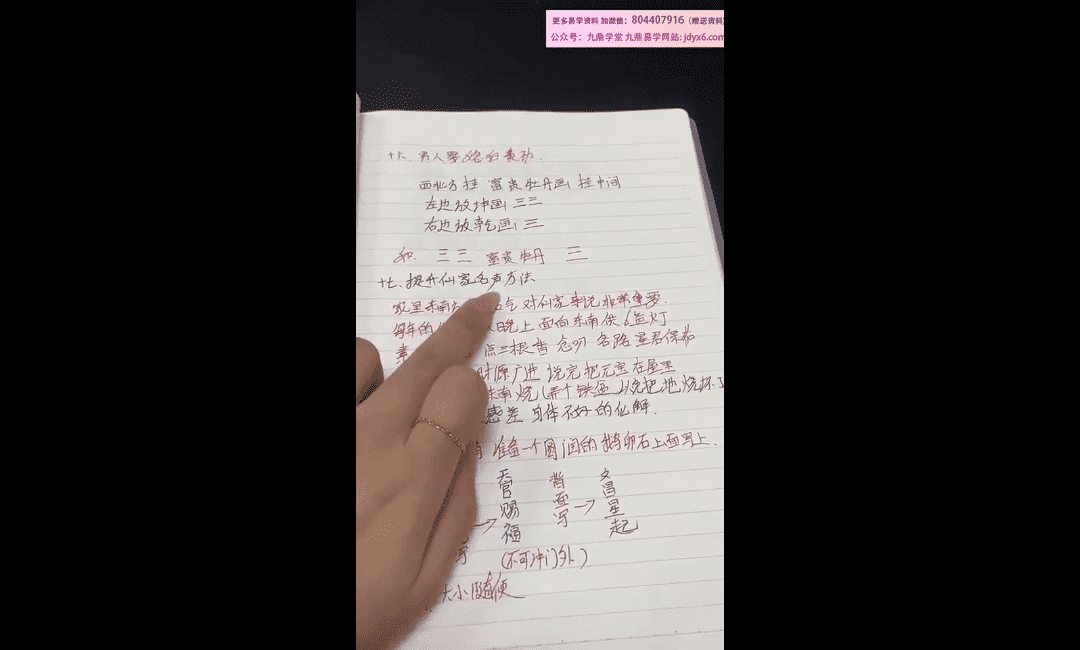 更多易学资料 加微信：804407916（赠送资料
公众号：九鼎学堂 九鼎易学网站: jdyx6.com
十六、男人要
西北方挂 富贵牡丹画 挂中间
左边放坤画 三三
右边放乾画 三
和 三三 富贵牡丹 三
十七、提升仙家名声方法
家里东南 气 对仙家来说非常重要
每年的 晚上 面向东南供6盏灯
素 点三根香 念叨 各路星君保佑
财源广进 说完把元宝在屋里
东南烧（弄个铁盆）以免把地烧坏了
感差 身体不好的化解.
准备一个圆润的鹅卵石上面写上.
天官赐福 背面写→ 文昌星起
写
（不可冲门外）
大小随便